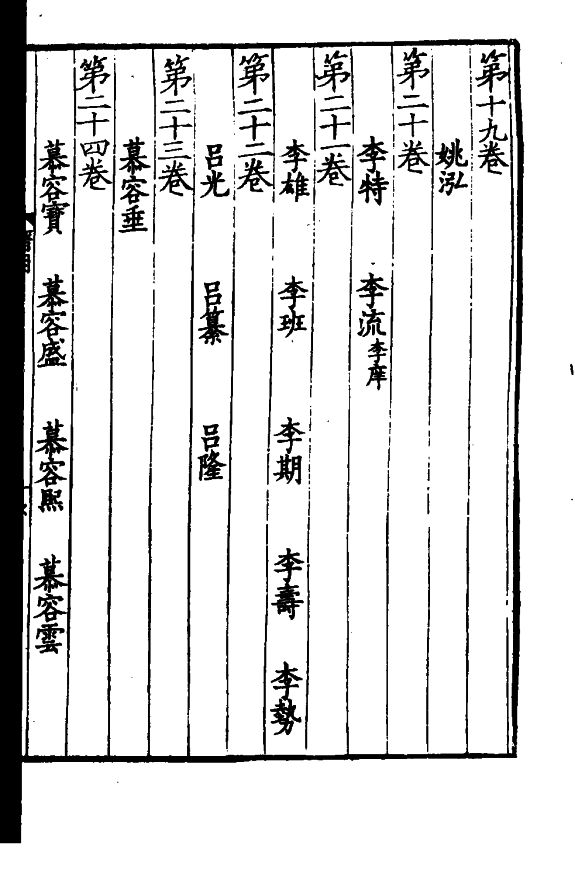 第十九卷
姚泓
第二十卷
李特 李流 李庠
第二十一卷
李雄 李班 李期 李壽 李勢
第二十二卷
呂光 呂纂 呂隆
第二十三卷
慕容垂
第二十四卷
慕容寶 慕容盛 慕容熙 慕容雲